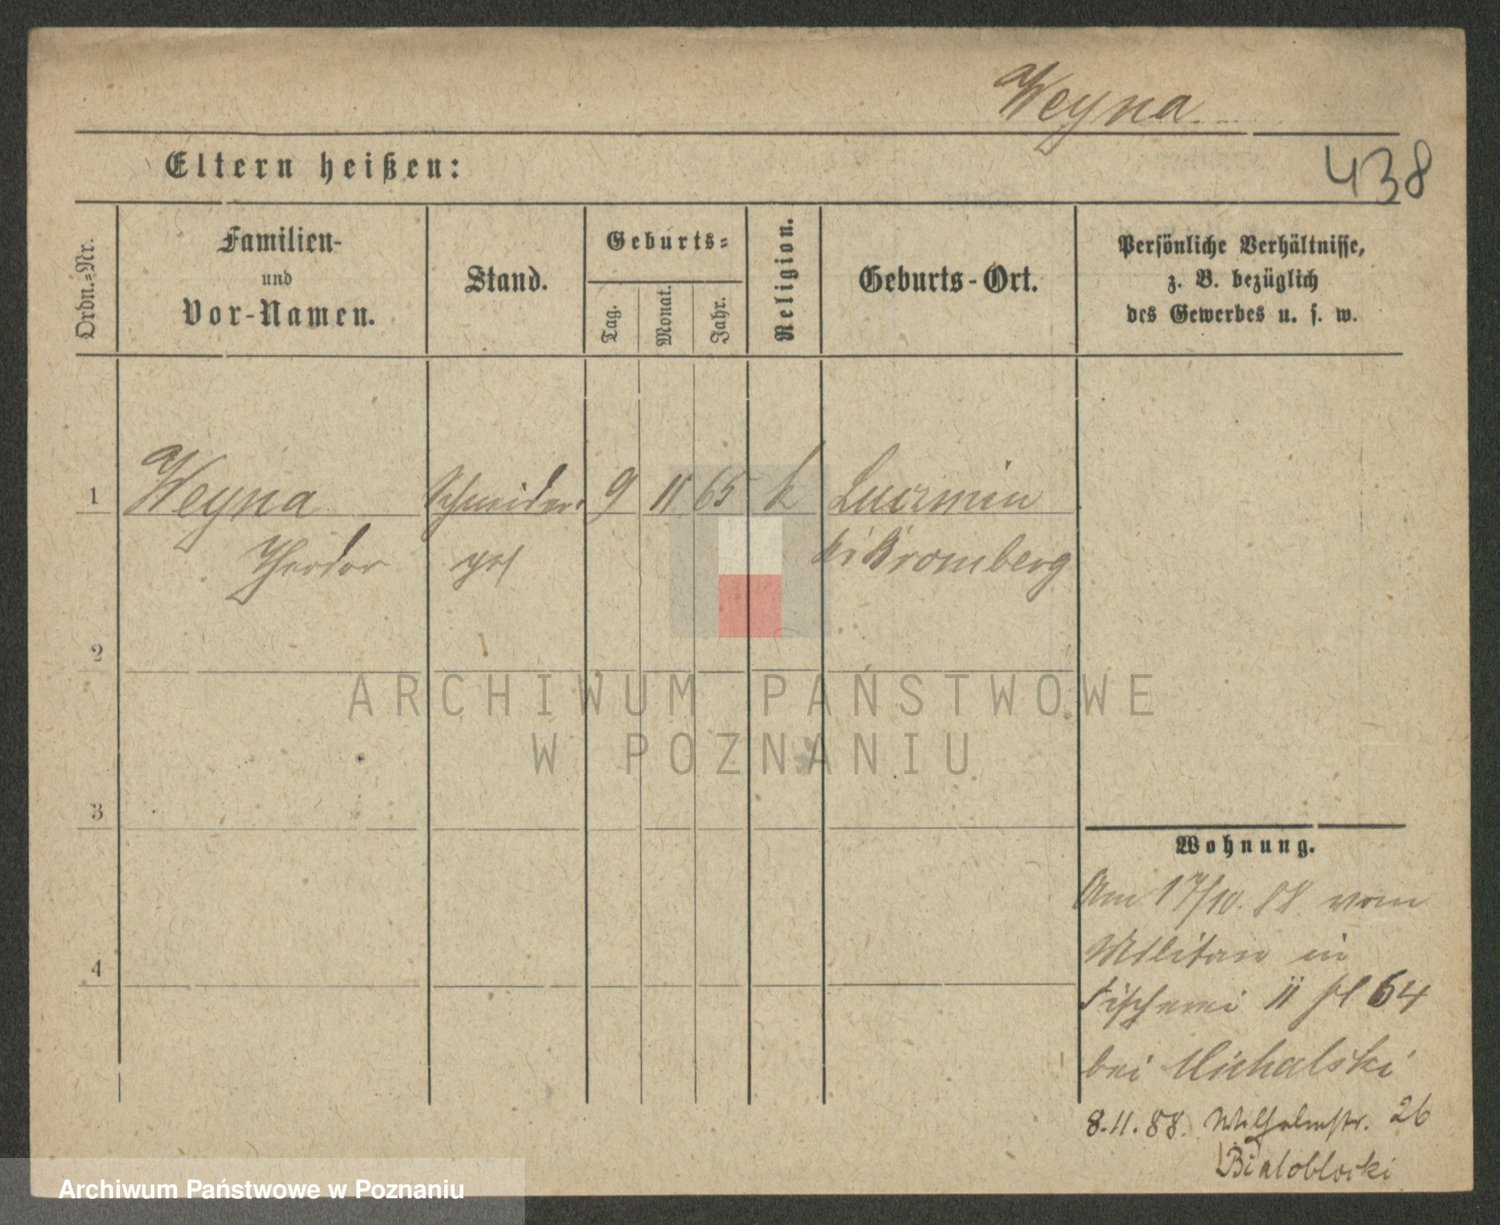 Weyna
Eltern heißen:
438
Ordn.-Nr.
Familien-
und
Vor-Namen.
Stand.
Geburts-
Tag.
Monat.
Jahr.
Religion.
Geburts-Ort.
Persönliche Verhältnisse,
z. B. bezüglich
des Gewerbes u. s. w.
1 Weyna Schneider 9 11 65 k
Theodor Bromberg
2
ARCHIWUM PAŃSTWOWE
W POZNANIU
3
4
Wohnung.
Am 17/10. 88 vom
Militair in
Fischerei II 64
bei Michalski
8.11.88. Wilhelmstr. 26
Bialoblocki
Archiwum Państwowe w Poznaniu